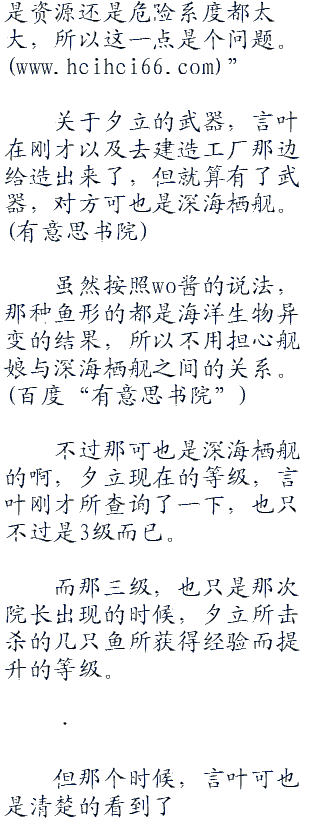 是资源还是危险系度都太
大，所以这一点是个问题。
(www.hcihci66.com)”
关于夕立的武器，言叶
在刚才以及去建造工厂那边
给造出来了，但就算有了武
器，对方可也是深海栖舰。
(有意思书院)
虽然按照wo酱的说法，
那种鱼形的都是海洋生物异
变的结果，所以不用担心舰
娘与深海栖舰之间的关系。
(百度“有意思书院”)
不过那可也是深海栖舰
的啊，夕立现在的等级，言
叶刚才所查询了一下，也只
不过是3级而已。
而那三级，也只是那次
院长出现的时候，夕立所击
杀的几只鱼所获得经验而提
升的等级。
.
但那个时候，言叶可也
是清楚的看到了